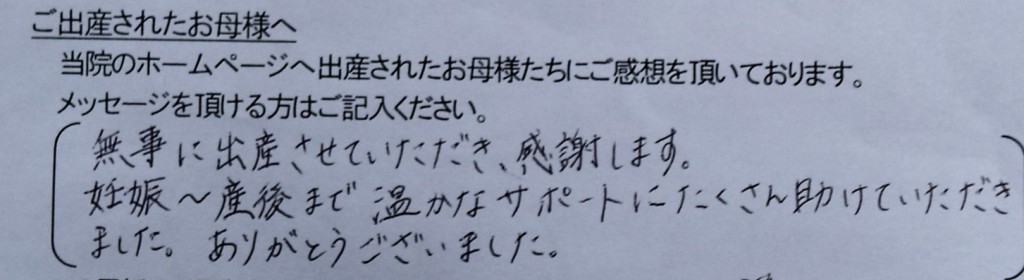 ご出産されたお母様へ
当院のホームページへ出産されたお母様たちにご感想を頂いております。
メッセージを頂ける方はご記入ください。
無事に出産させていただき、感謝します。
妊娠～産後まで温かなサポートにたくさん助けていただき
ました。ありがとうございました。